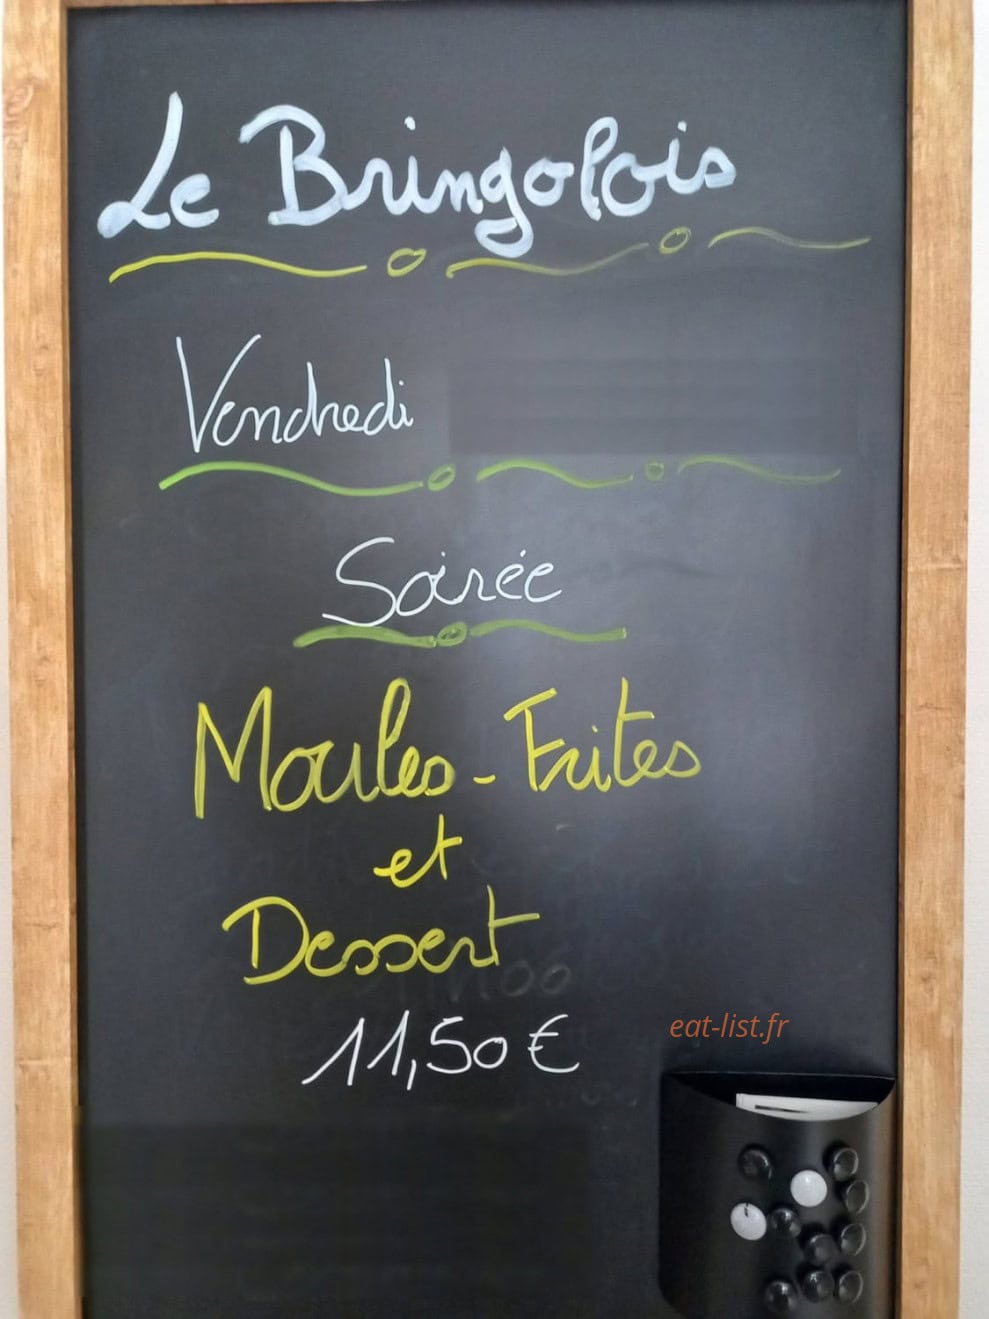 Le Bringolois
Vendredi
Soirée
Moules-Frites
et
Dessert
11,50 €
eat-list.fr